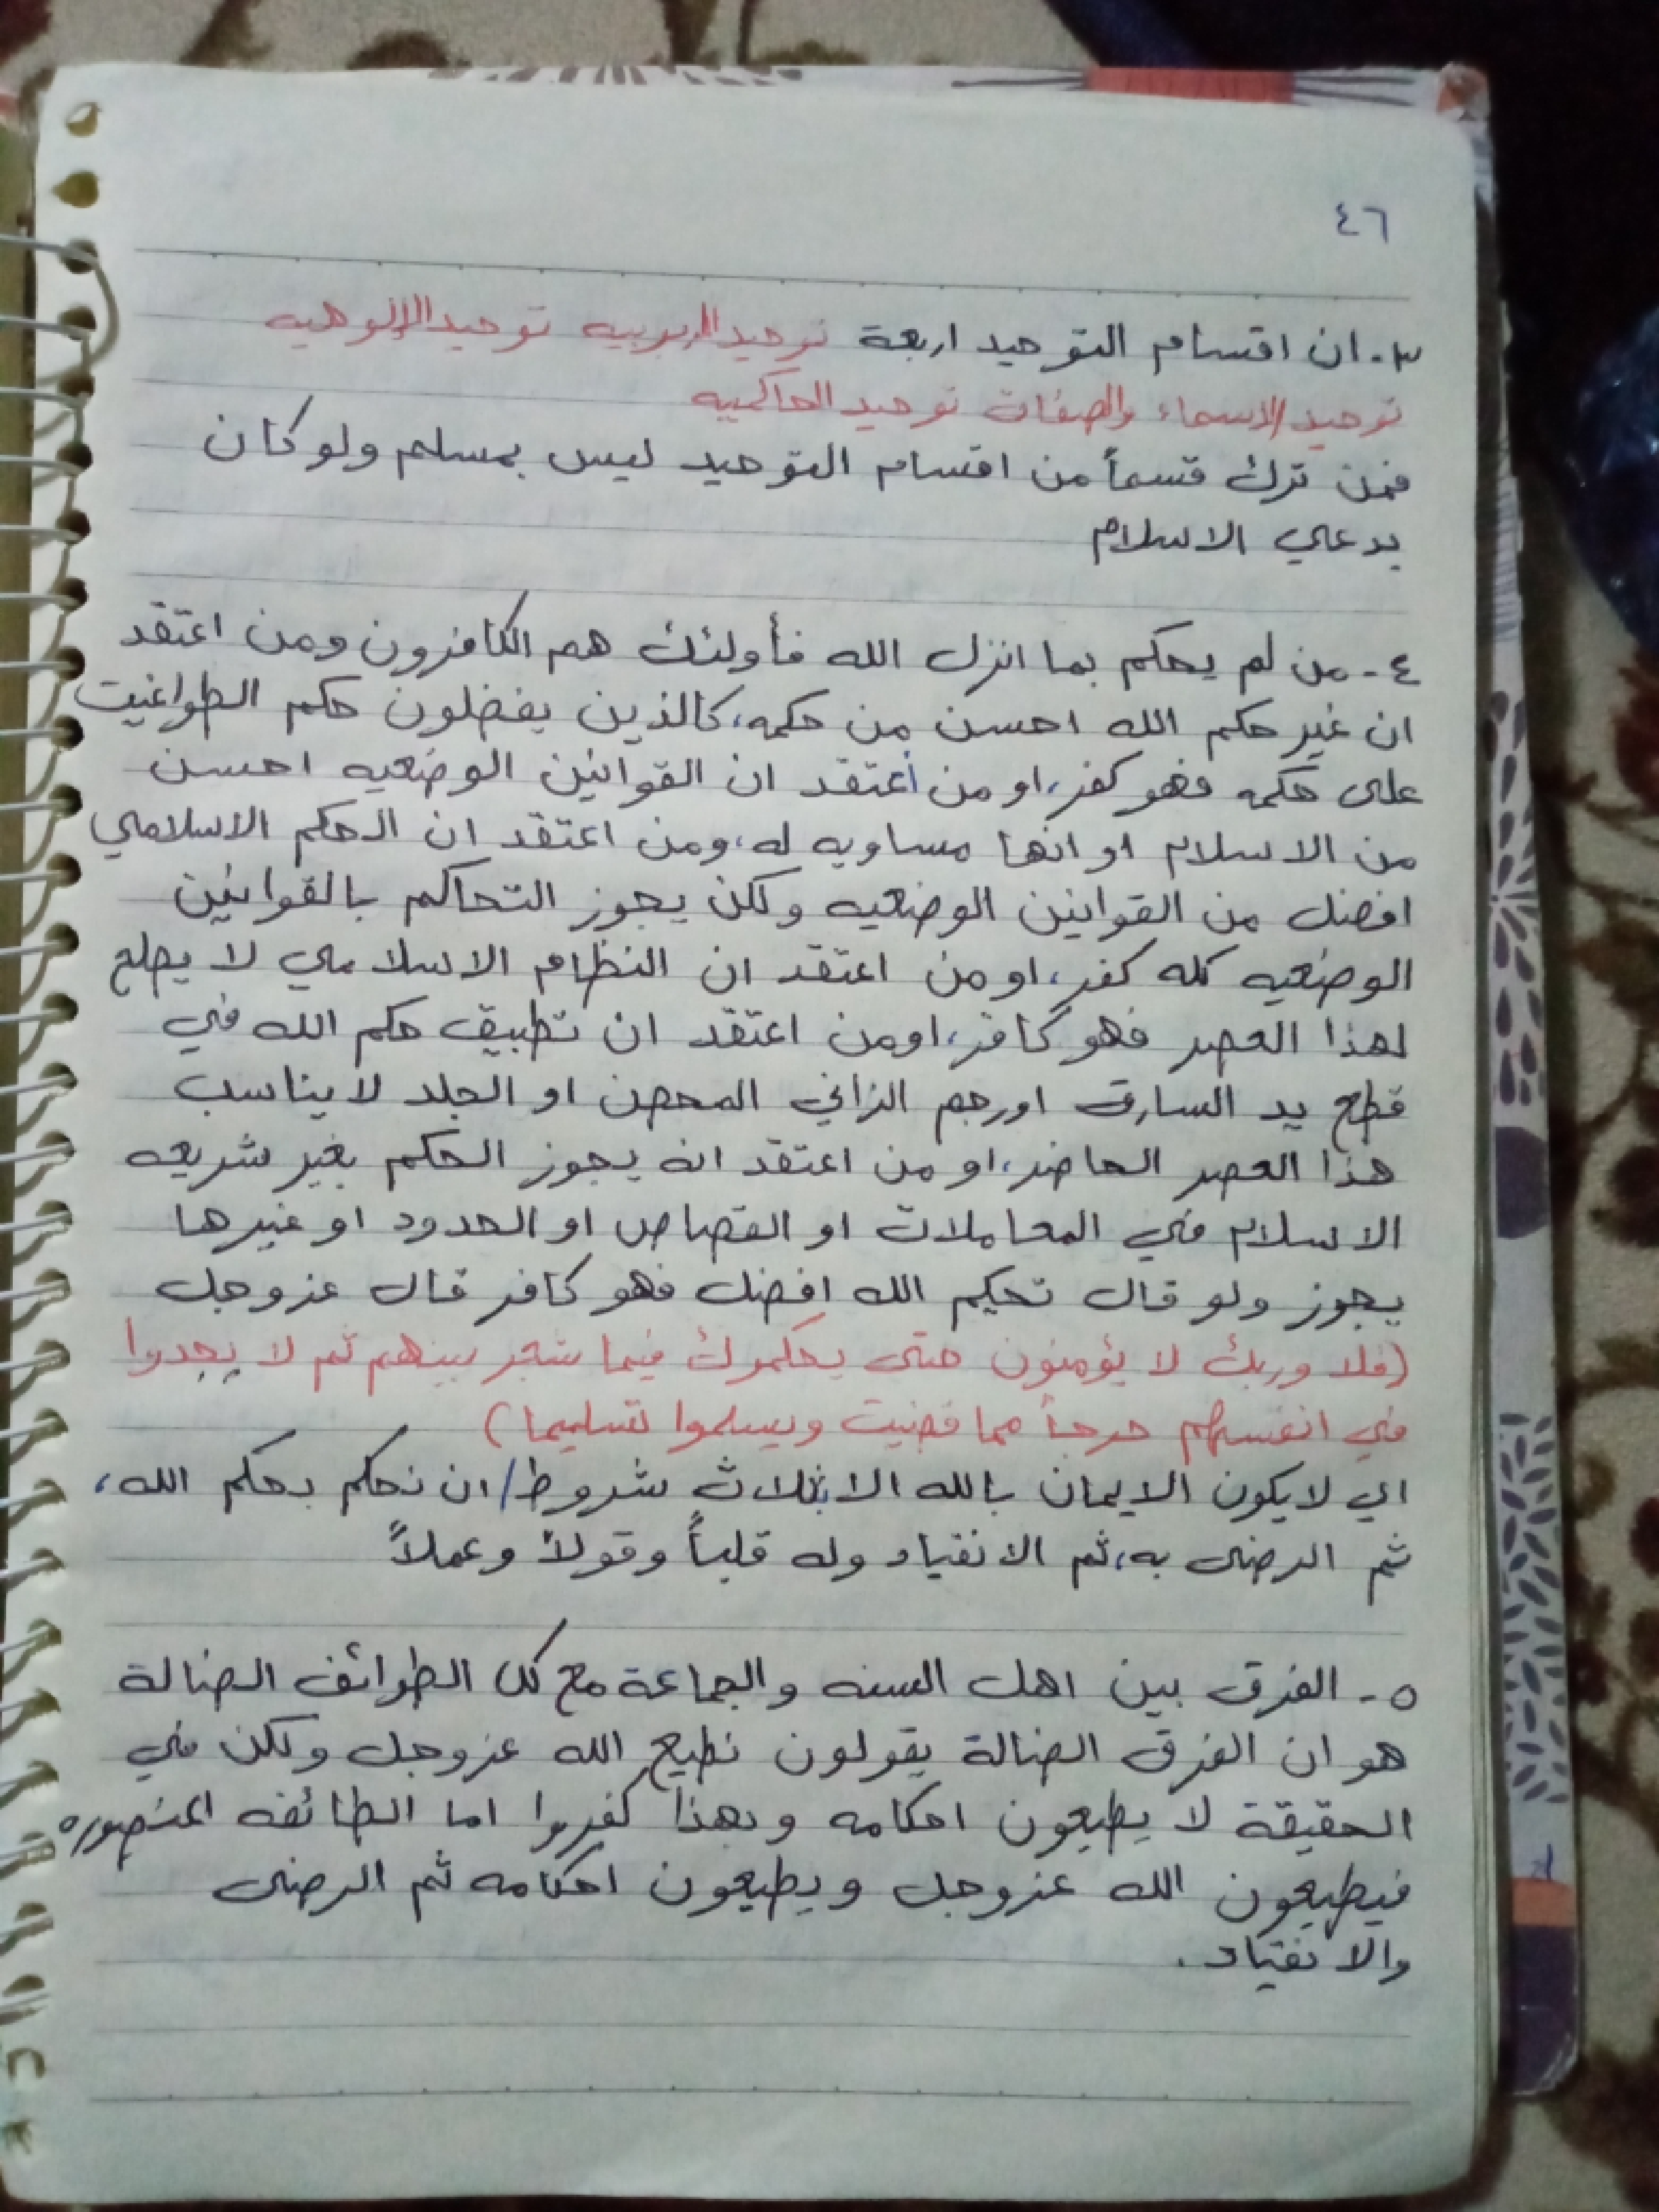 ٤٦
٣- ان اقسام التوحيد اربعة توحيد الربوبيه توحيد الالوهيه
توحيد الاسماء والصفات توحيد الحاكميه
فمن ترك قسماً من اقسام التوحيد ليس بمسلم ولو كان
يدعي الاسلام
٤- من لم يحكم بما انزل الله فأولئك هم الكافرون ومن اعتقد
ان غير حكم الله احسن من حكمه، كالذين يفضلون حكم الطواغيت
على حكمه فهو كفر، او من أعتقد ان القوانين الوضعيه احسن
من الاسلام او انها مساويه له، ومن اعتقد ان الحكم الاسلامي
افضل من القوانين الوضعيه ولكن يجوز التحاكم بالقوانين
الوضعيه كله كفر، او من اعتقد ان النظام الاسلامي لا يصلح
لهذا العصر فهو كافر، او من اعتقد ان تطبيق حكم الله في
قطع يد السارق او رجم الزاني المحصن او الجلد لا يناسب
هذا العصر الحاضر، او من اعتقد انه يجوز الحكم بغير شريعه
الاسلام في المعاملات او القصاص او الحدود او غيرها
يجوز ولو قال تحكيم الله افضل فهو كافر قال عز وجل
(فلا وربك لا يؤمنون حتى يحكموك فيما شجر بينهم ثم لا يجدوا
في انفسهم حرجاً مما قضيت ويسلموا تسليما)
اي لا يكون الايمان بالله الا بثلاث شروط/ ان نحكم بحكم الله،
ثم الرضى به، ثم الانقياد وله قلباً وقولاً وعملاً
٥- الفرق بين اهل السنه والجماعة مع كل الطوائف الضالة
هو ان الفرق الضالة يقولون نطيع الله عز وجل ولكن في
الحقيقة لا يطيعون احكامه وبهذا كفروا اما الطائفه المنصوره
فيطيعون الله عز وجل ويطيعون احكامه ثم الرضى
والانقياد.